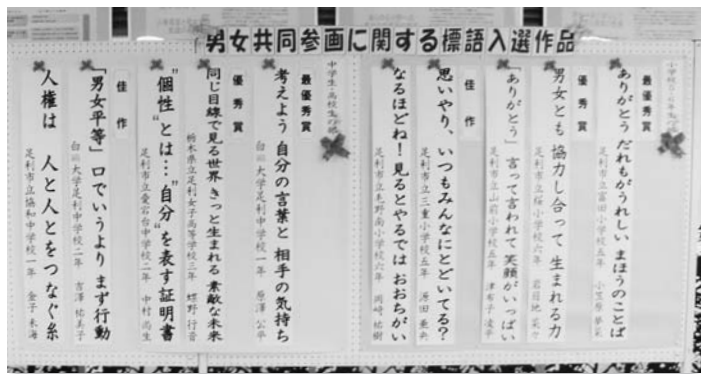 男女共同参画に関する標語入選作品
小学校5・6年生の部
最優秀賞
ありがとう だれもがうれしい まほうのことば
足利市立富田小学校五年 小笠原 夢菜
優秀賞
男女とも 協力し合って 生まれる力
足利市立桜小学校六年 岩目地 菜々
「ありがとう」 言って言われて 笑顔がいっぱい
足利市立山前小学校五年 津布子 凌平
思いやり、いつもみんなにとどいてる?
足利市立三重小学校五年 源田 亜央
なるほどね!見るとやるでは おおちがい
足利市立毛野南小学校六年 岡崎 祐樹
中学生・高校生の部
最優秀賞
考えよう 自分の言葉と 相手の気持ち
白鷗大学足利中学校一年 原澤 公平
優秀賞
同じ目線で見る世界 きっと生まれる 素敵な未来
栃木県立足利女子高等学校三年 蝶野 行音
"個性"とは…"自分"を表す証明書
足利市立愛宕台中学校二年 中村 尚生
佳作
「男女平等」口でいうより まず行動
白鷗大学足利中学校二年 吉澤 祐美子
人権は 人と人とをつなぐ糸
足利市立協和中学校一年 金子 未海